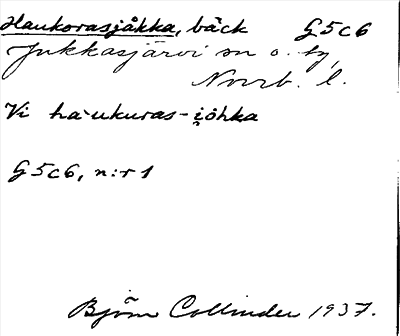 Haukorasjåkka, bäck G5c6
Jukkasjärvi sn o. by,
Norrb. l.
Vi haukuras-i̯ohka
G5c6, n:r 1
Björn Collinder 1937.